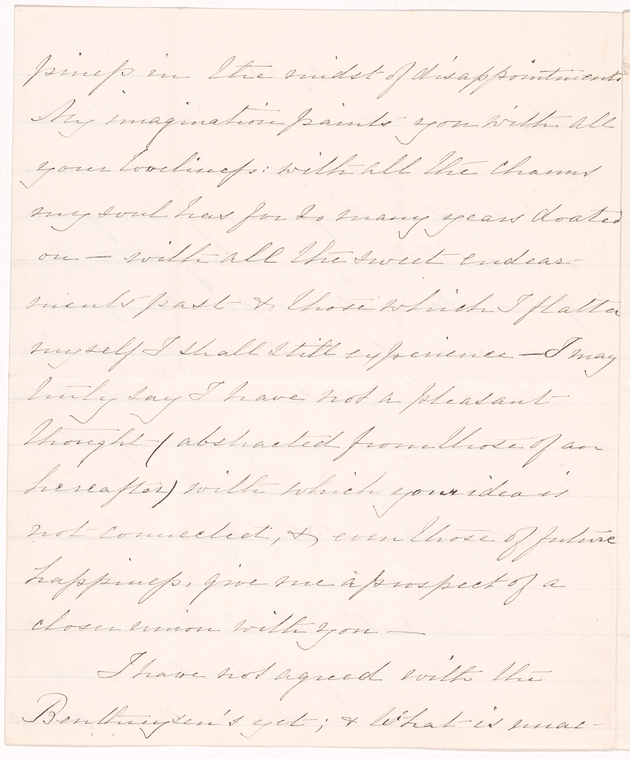 piness in the midst of disappointments
My imagination paints you with all
your loveliness: with all the charms
my soul has for so many years doated
on — with all the sweet endear-
ments past & those which I flatter
myself I shall still experience — I may
truly say I have not a pleasant
thought (abstracted from those of an
hereafter) with which your idea is
not connected, & even those of future
happiness, give me a prospect of a
closer union with you —
I have not agreed with the
Benthuysen's yet; & what is unac-